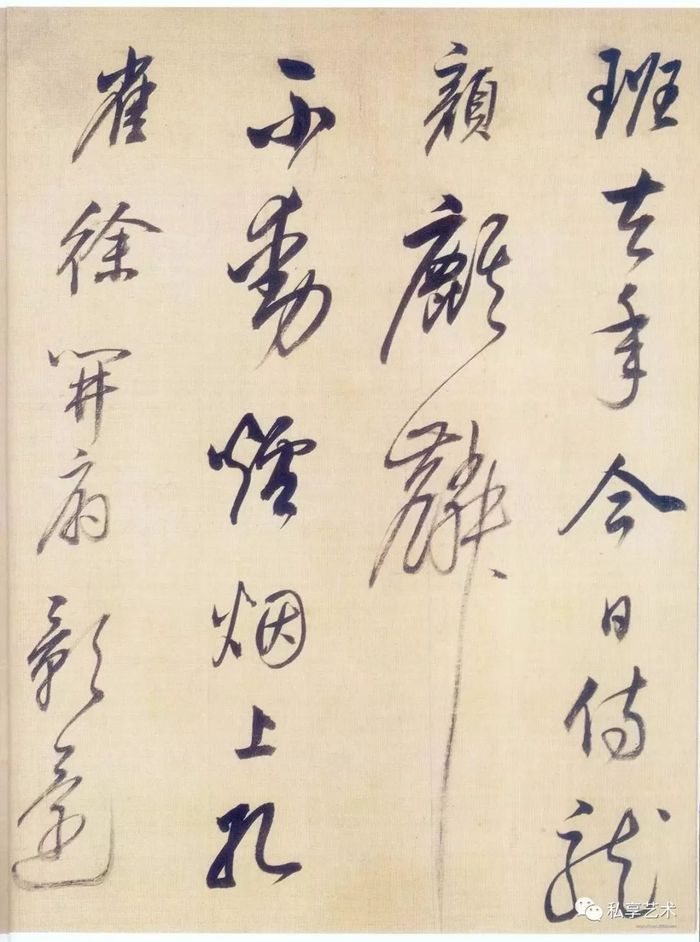 班去年今日侍龍
顏麒麟
不動爐烟上孔
雀徐開扇影還
私享艺术